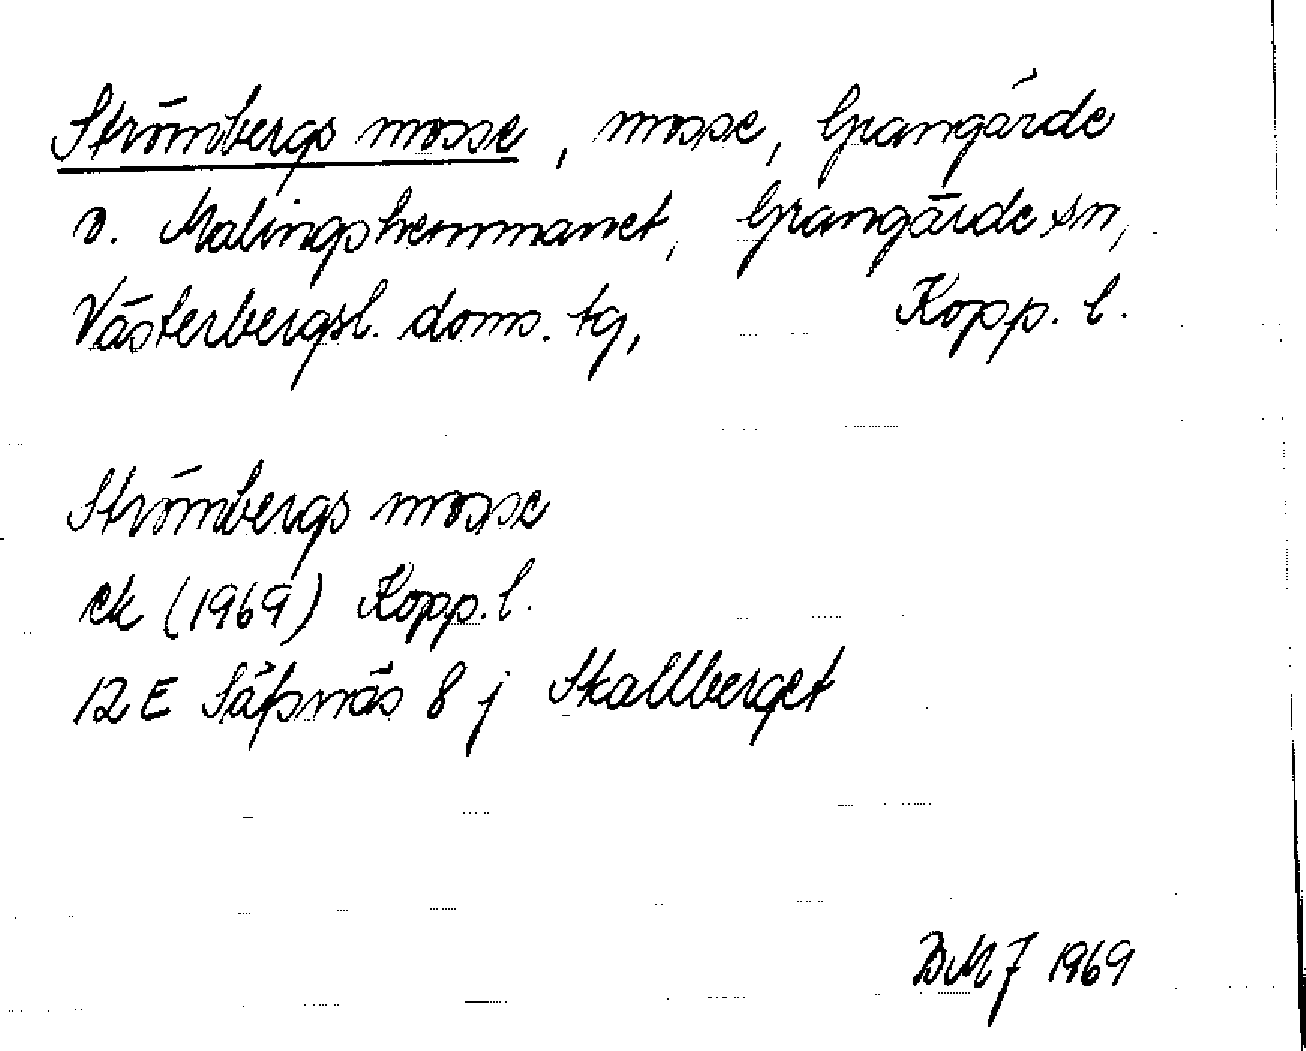 Strömbergs mosse, mosse, Grangärde
v. Malingshemmanet, Grangärde sn,
Västerbergsl. doms. tg, Kopp. l.
Strömbergs mosse
ek (1969) Kopp. l.
12 E Säfsnäs 8 j Skallberget
DMJ 1969